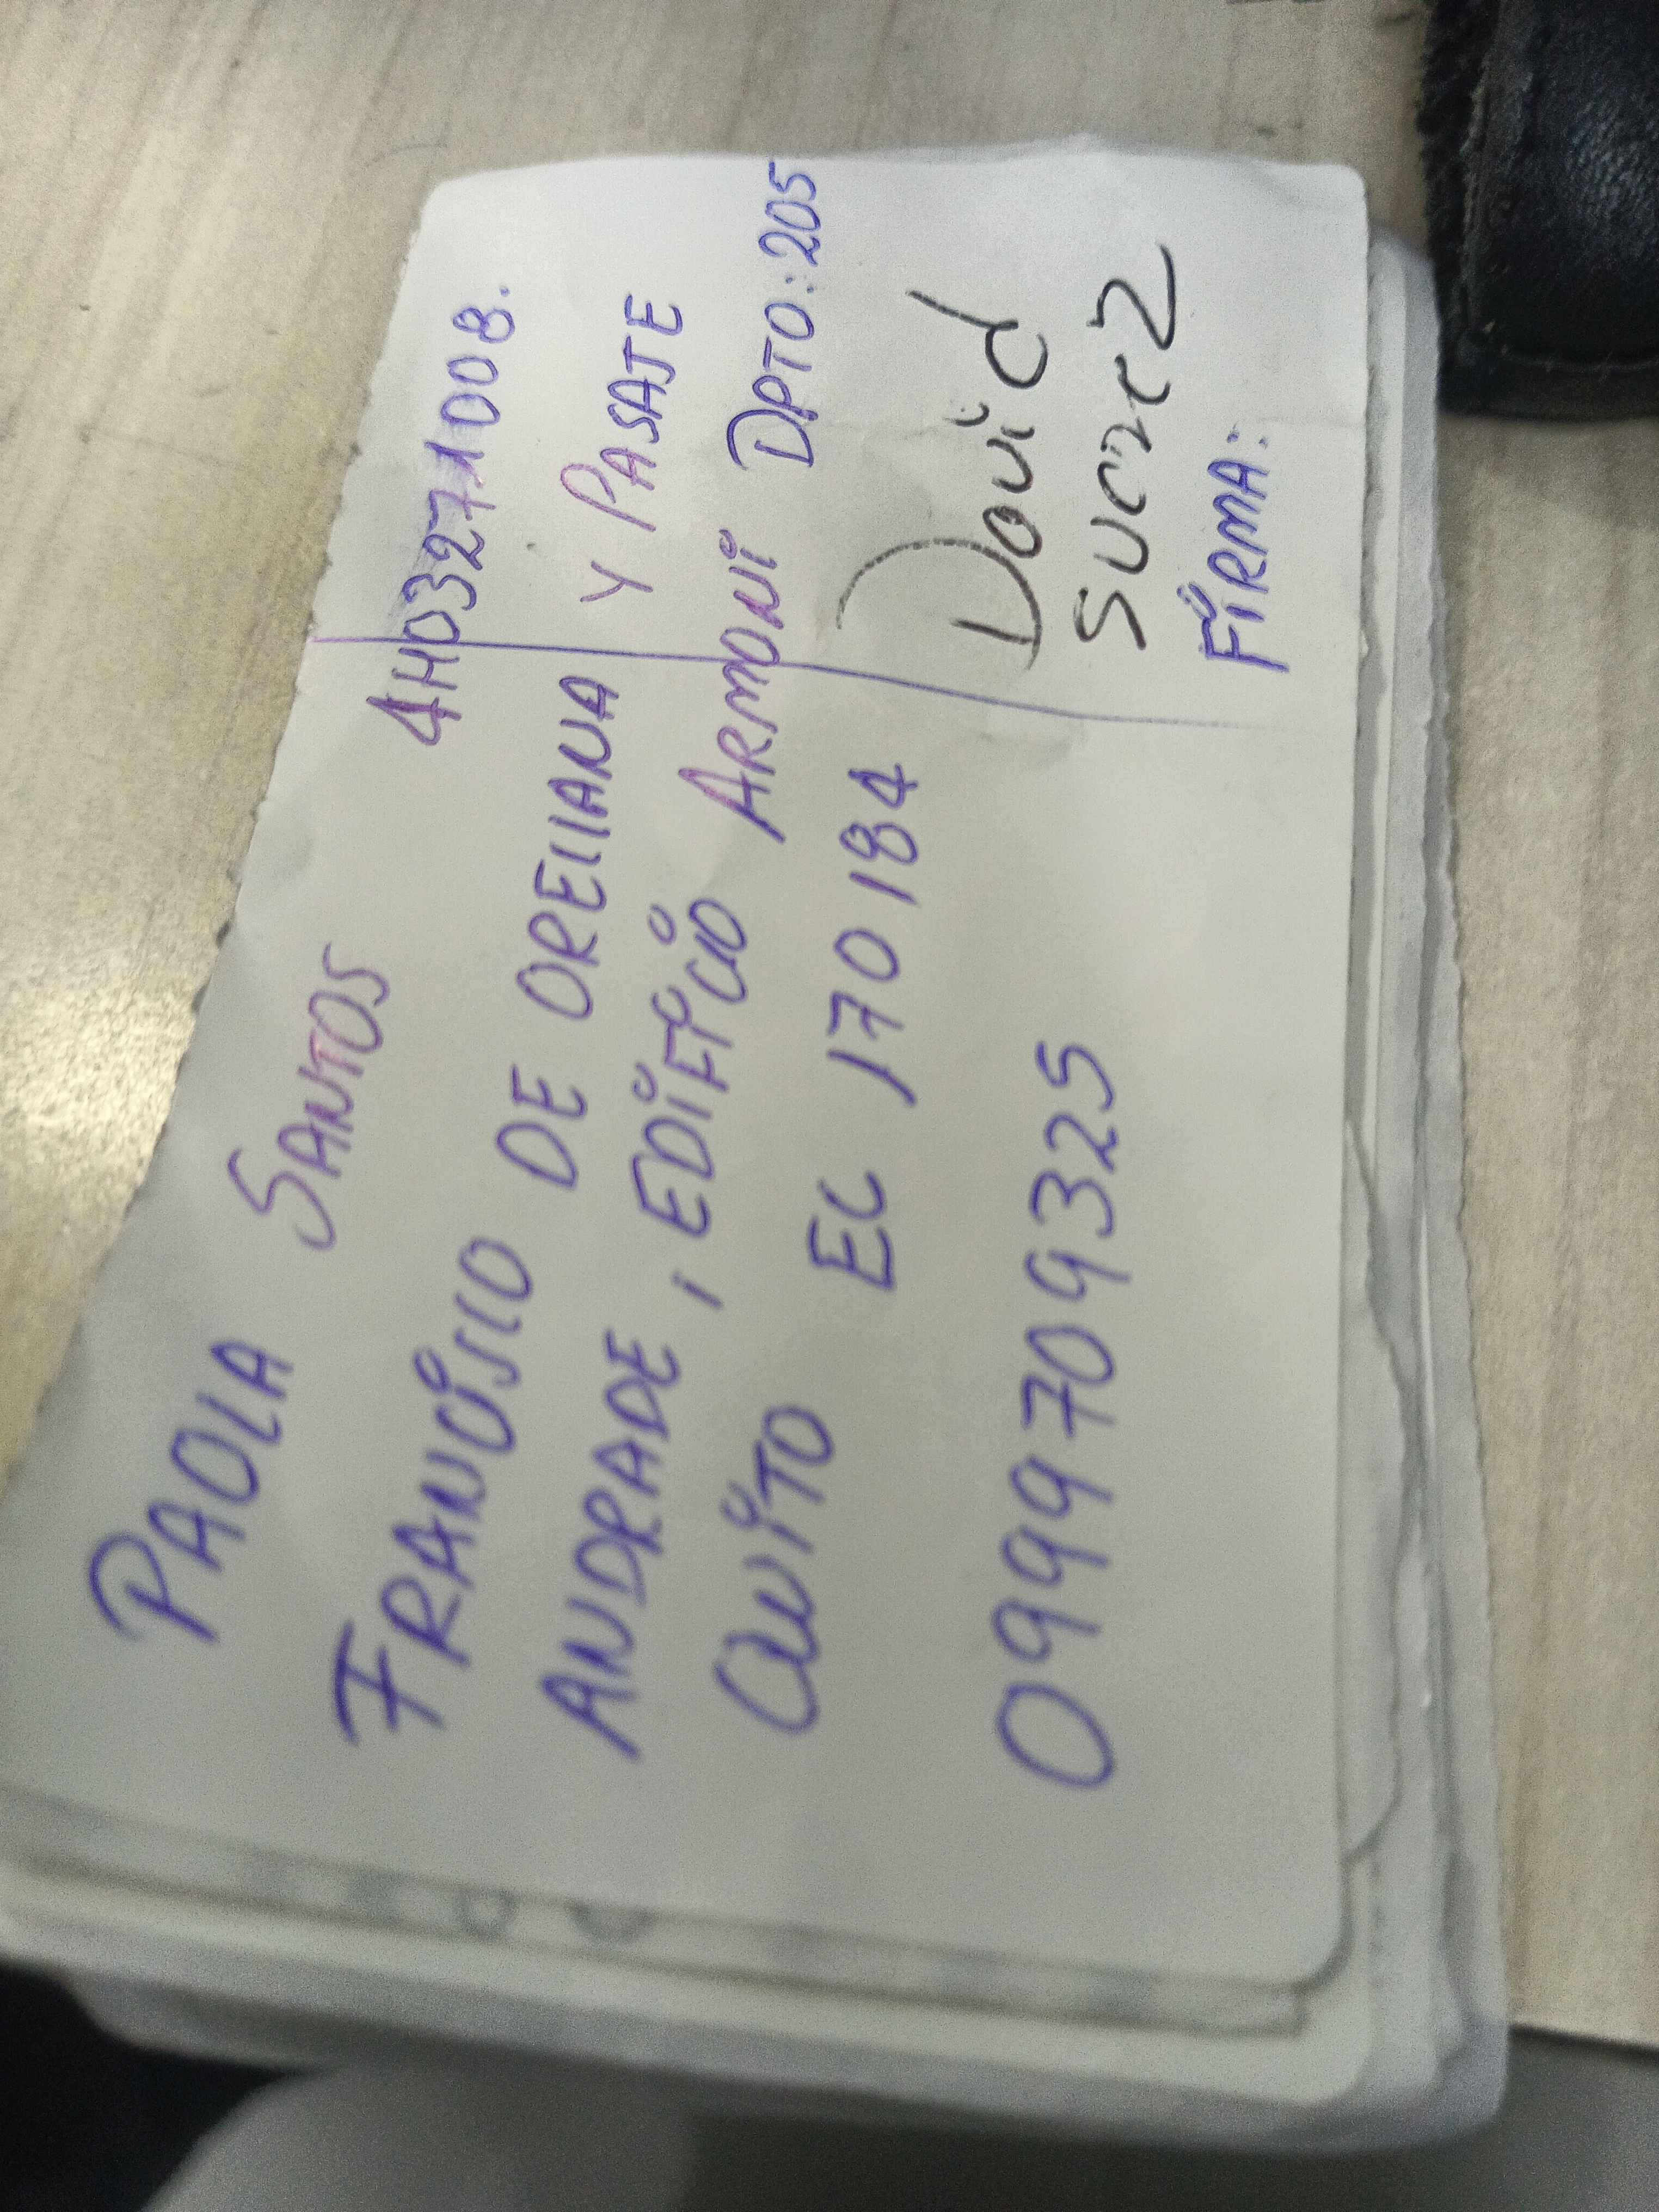 PAOLA SANTOS 4H03271008.
FRANCISCO DE ORELLANA Y PASAJE
ANDRADE, EDIFICIO ARMONI DPTO: 205
QUITO EC 170184
David
0999709325
FIRMA: